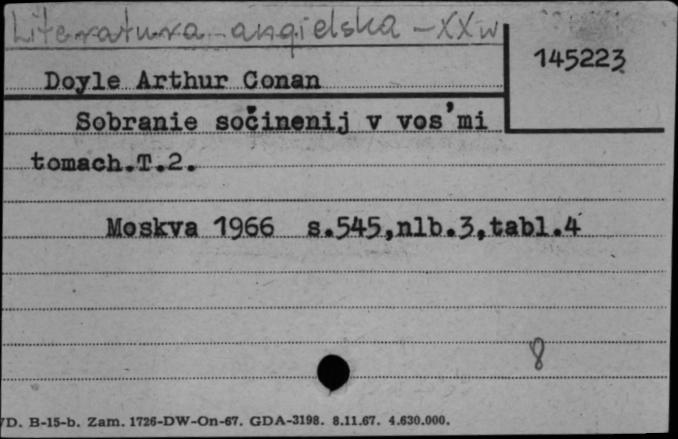 Literatura angielska - XX w
145223
Doyle Arthur Conan
Sobranie sočinenij v vos'mi
tomach.T.2.
Moskva 1966 s.545,nlb.3,tabl.4
8
D. B-15-b. Zam. 1726-DW-On-67. GDA-3198. 8.11.67. 4.630.000.